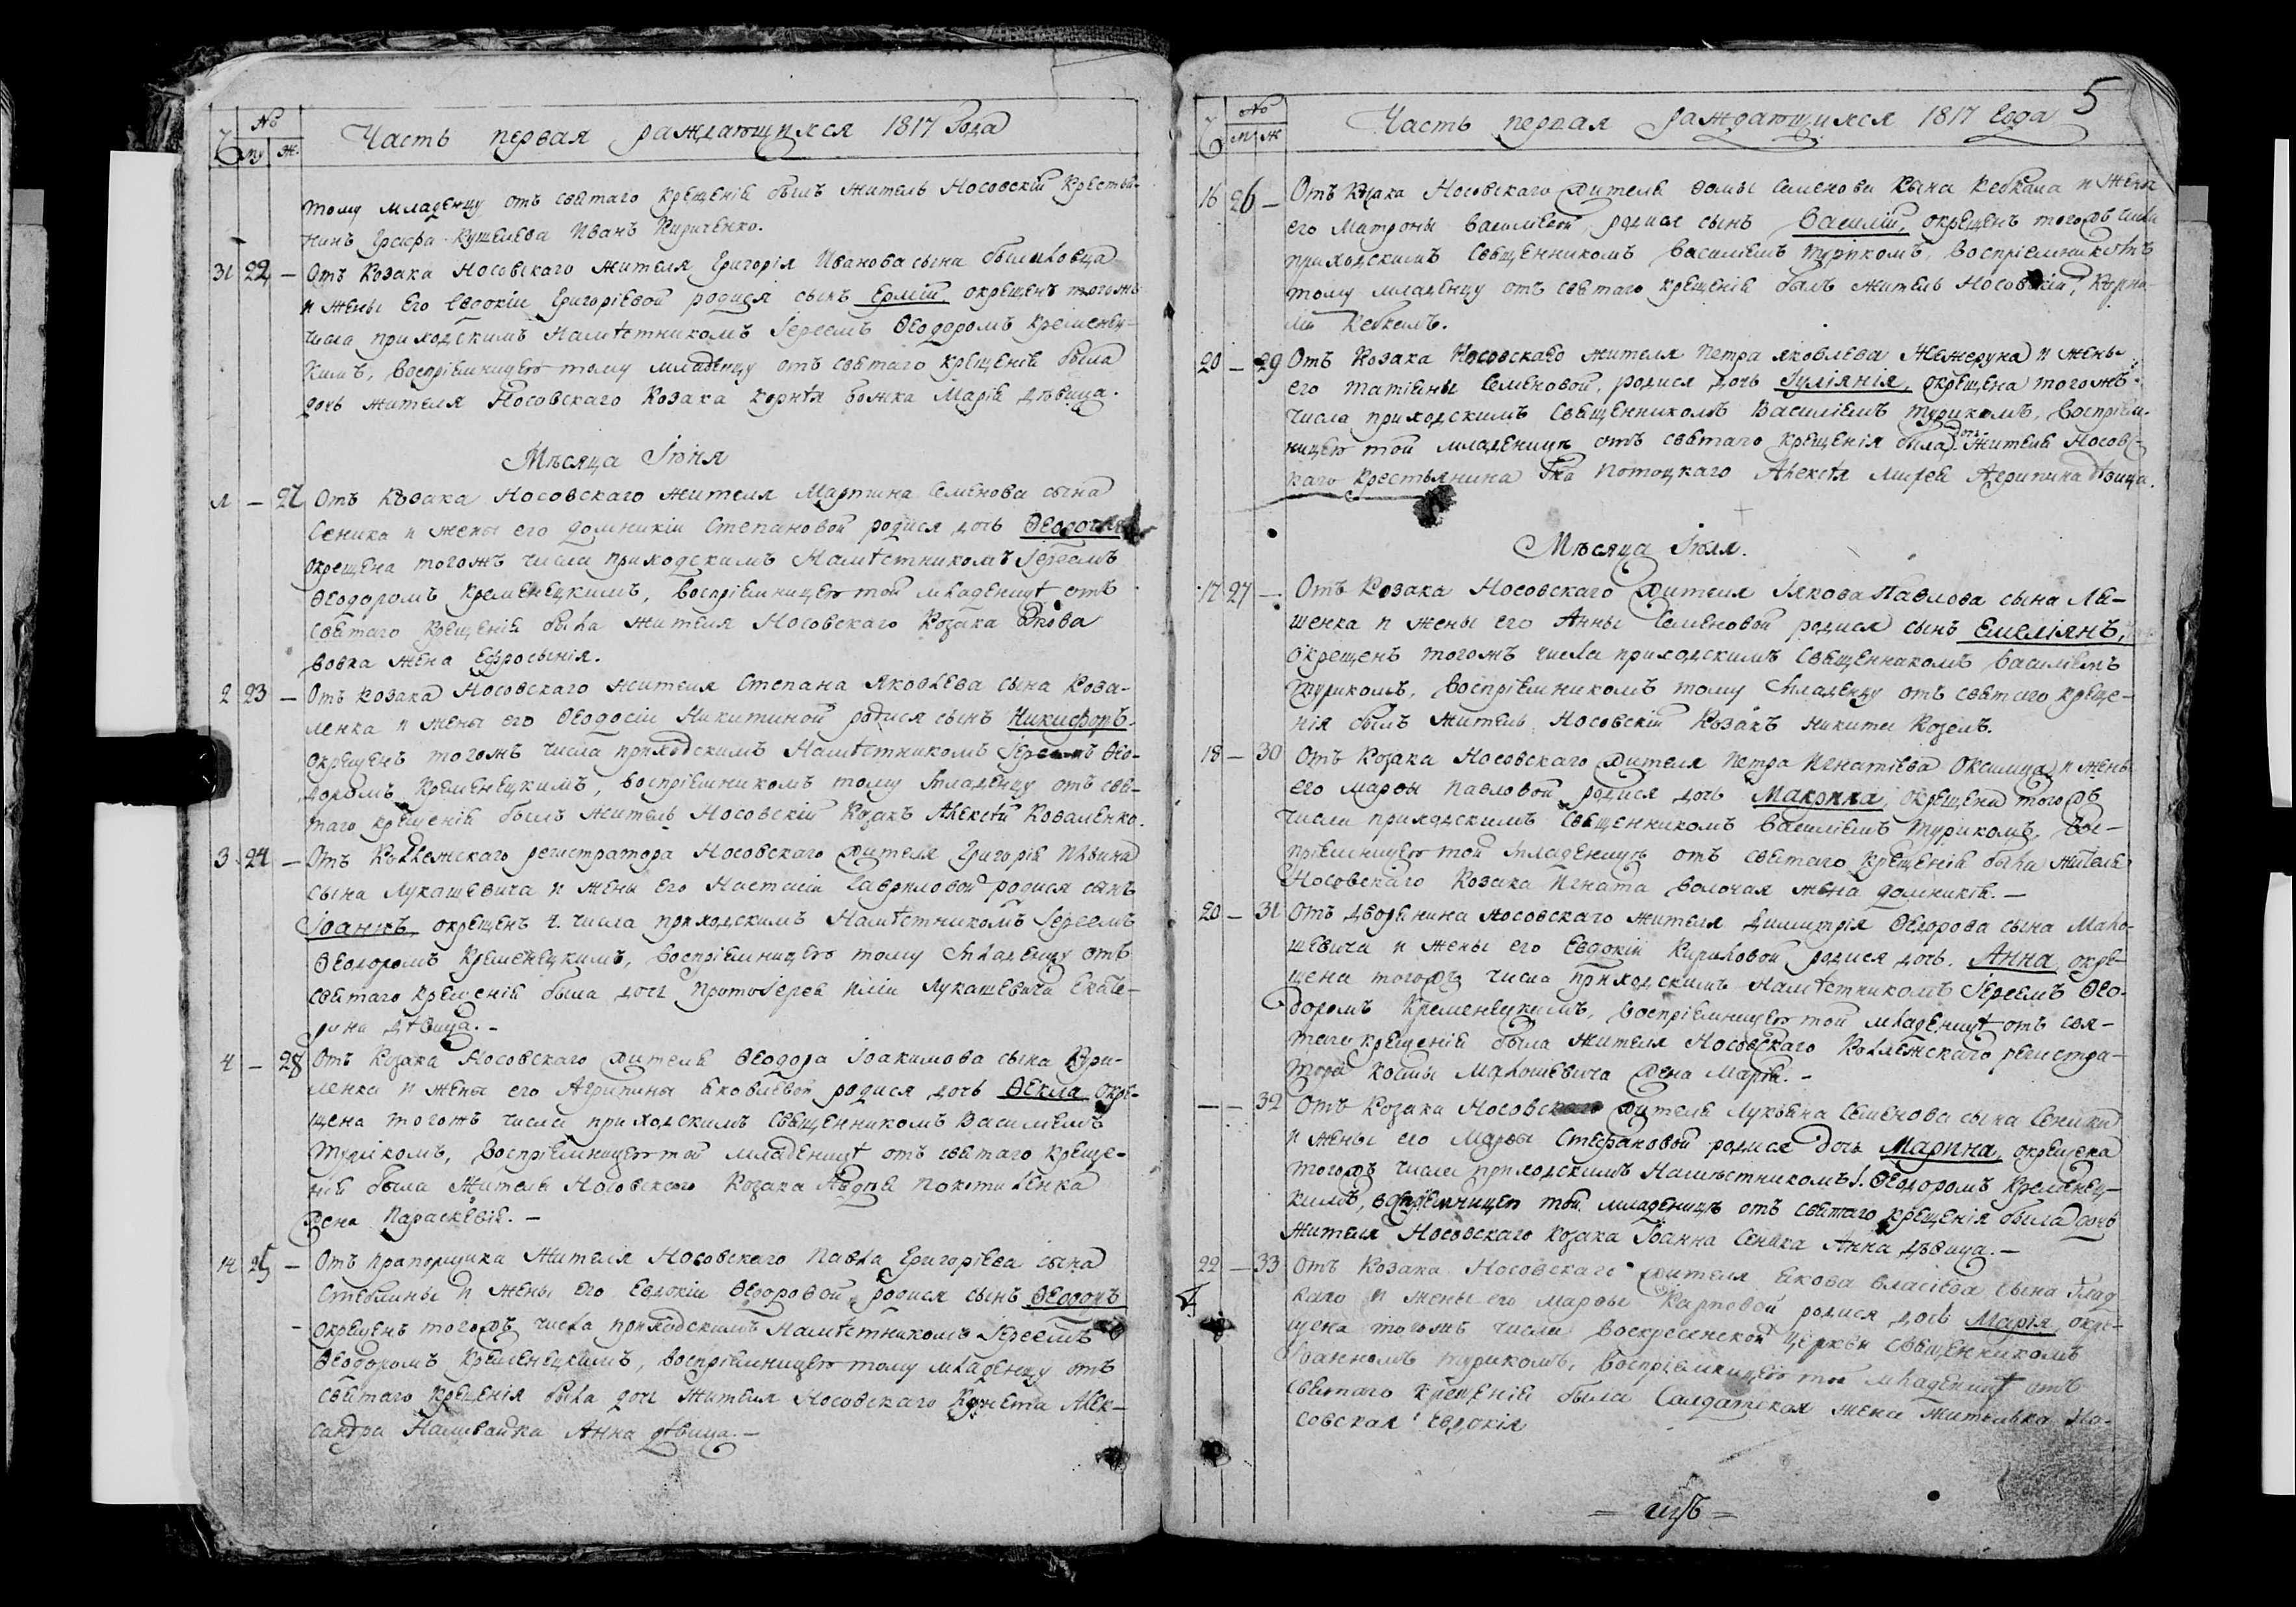 №
Му Ж.
Часть первая раждающихся 1817 Года
тому младенцу отъ святаго крещенія былъ житель Носовскій Крестья-
нинъ Графа Кушелева Иванъ Кириченко.
31 22 — Отъ Козака Носовскаго жителя Григорія Иванова сына
и жены его Евдокіи Григоріевой родися сынъ Ермій окрещенъ тогожъ
числа приходскимъ Намѣстникомъ Іереемъ Ѳеодоромъ Кременец-
кимъ, воспріемницею тому младенцу отъ святаго крещенія была
дочь жителя Носовскаго Козака Корнѣя Божка Марія дѣвица.
Мѣсяца Іюня
— 27 Отъ Козака Носовскаго жителя Мартина Семенова сына
Сеника и жены его Домникіи Степановой родися дочь
окрещена тогожъ числа приходскимъ Намѣстникомъ Іереемъ
Ѳеодоромъ Кременецкимъ, воспріемницею той младеницѣ отъ
святаго крещенія была жителя Носовскаго Козака Якова
Вовка жена Ефросынія.
2 23 — Отъ Козака Носовскаго жителя Степана Яковлева сына Кова-
ленка и жены его Ѳеодосіи Никитиной родися сынъ Никифоръ
окрещенъ тогожъ числа приходскимъ Намѣстникомъ Іереемъ Ѳео-
доромъ Кременецкимъ, воспріемникомъ тому младенцу отъ свя-
таго крещенія былъ житель Носовскій Козакъ Алексѣй Коваленко.
3 24 — Отъ Коллежскаго регистратора Носовскаго жителя Григорія Ильина
сына Лукашевича и жены его Настасіи Гавриловой родися сынъ
Іоаннъ, окрещенъ 4. числа приходскимъ Намѣстникомъ Іереемъ
Ѳеодоромъ Кременецкимъ, воспріемницею тому младенцу отъ
святаго крещенія была дочь Протоіерея Иліи Лукашевича Екате-
рина дѣвица. —
4 — 28 Отъ Козака Носовскаго жителя Ѳеодора Іоакимова сына
ленка и жены его Агрипины Яковлевой родися дочь Ѳекла окре-
щена тогожъ числа приходскимъ Священникомъ Василіемъ
Турикомъ, воспріемницею той младеницѣ отъ святаго креще-
нія была жителя Носовскаго Козака Авдія
жена Параскевія. —
14 25 — Отъ прапорщика жителя Носовскаго Павла Григоріева сына
Стеблины и жены его Евдокіи Ѳедоровой родися сынъ Ѳеодоръ
окрещенъ тогожъ числа приходскимъ Намѣстникомъ Іереемъ
Ѳеодоромъ Кременецкимъ, воспріемницею тому младенцу отъ
святаго крещенія была дочь жителя Носовскаго Корнета Алек-
сандра Наливайка Анна дѣвица. —
5
№
М Ж
Часть первая раждающихся 1817 года
16 26 — Отъ Козака Носовскаго жителя Ѳомы Семенова сына Кебкала и жены
его Матроны Василіевой родися сынъ Василій, окрещенъ тогожъ числа
приходскимъ Священникомъ Василіемъ Турикомъ, воспріемникомъ
тому младенцу отъ святаго крещенія былъ житель Носовскій,
20 — 29 Отъ Козака Носовскаго жителя Петра Яковлева Жежеруна и жены
его Татіяны Семеновой, родися дочь Іуліянія, окрещена тогожъ
числа приходскимъ Священникомъ Василіемъ Турикомъ, воспріем-
ницею той младеницѣ отъ святаго крещенія была дочь жителя Носовс-
каго Крестьянина Потоцкаго Алексѣя Агрипина дѣвица.
Мѣсяца Іюля.
17 27 — Отъ Козака Носовскаго жителя Іякова Павлова сына Ля-
шенка и жены его Анны Семеновой родися сынъ Емеліянъ,
окрещенъ тогожъ числа приходскимъ Священникомъ Василіемъ
Турикомъ, воспріемникомъ тому младенцу отъ святаго креще-
нія былъ житель Носовскій Козакъ Никита Козелъ.
18 — 30 Отъ Козака Носовскаго жителя Петра Игнатіева и жены
его Марѳы Павловой родися дочь Макрина, окрещена тогожъ
числа приходскимъ Священникомъ Василіемъ Турикомъ, вос-
пріемницею той младеницѣ отъ святаго крещенія была жителя
Носовскаго Козака Игната Волочая жена Домникія. —
20 — 31 Отъ дворянина Носовскаго жителя Димитрія Ѳедорова сына Мало-
шевича и жены его Евдокіи Кириловой родися дочь Анна, окре-
щена тогожъ числа приходскимъ Намѣстникомъ Іереемъ Ѳео-
доромъ Кременецкимъ, воспріемницею той младеницѣ отъ свя-
таго крещенія была жителя Носовскаго Коллежскаго регистра-
тора Космы Малошевича жена Марія. —
— — 32 Отъ Козака Носовскаго жителя Лукьяна Семенова сына Сеника
и жены его Марѳы Стефановой родися дочь Марина, окрещена
тогожъ числа приходскимъ Намѣстникомъ І. Ѳеодоромъ Кременец-
кимъ, воспріемницею той младеницѣ отъ святаго крещенія была дочь
жителя Носовскаго козака Іоанна Сеника Анна дѣвица. —
22 — 33 Отъ Козака Носовскаго жителя Якова Власіева сына Глад-
каго и жены его Марѳы Карповой родися дочь Марія, окре-
щена тогожъ числа Воскресенской церкви Священникомъ
Іоанномъ Турикомъ, воспріемницею той младеницѣ отъ
святаго крещенія была Салдатская жена жителька Но-
совская Евдокія